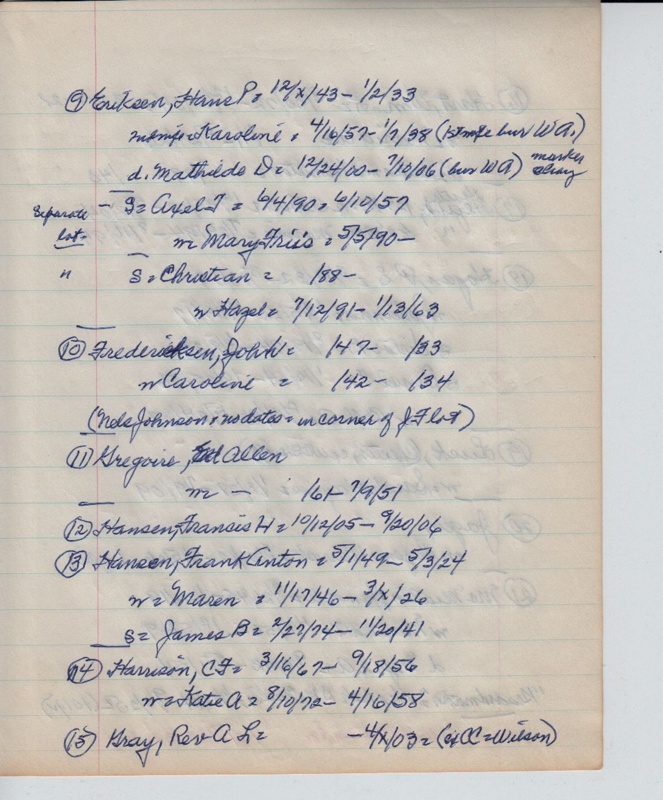 ⑨ Eriksen, Hans P = 12/x/43 - 1/2/33
Karoline = 4/16/57 - 1/7/38 (1st wife bur W A.)
d. Mathilde D = 12/24/00 - 7/10/06 (bur W A) marker
S = Axel T = 6/4/90 = 6/10/57
Separate
lot =
m Mary Friis = 5/5/90 -
" S = Christian = /88 -
w Hazel = 7/12/91 - 1/13/63
⑩ Fredericksen, John = /47 - /33
w Caroline = /42 - /34
(Nels Johnson = no dates = in corner of J.F lot)
⑪ Gregoire, Ed Allen
m - /61 - 7/9/51
⑫ Hansen, Francis H = 10/12/05 - 9/20/06
⑬ Hansen, Frank Anton = 5/1/49 - 5/3/24
w = Maren = 11/17/46 - 3/x/26
S = James B = 2/27/74 - 11/20/41
⑭ Harrison, CF = 3/16/67 - 9/18/56
w = Katie A = 8/10/72 - 4/16/58
⑮ Gray, Rev A L = - 4/x/03 = (CC = Wilson)